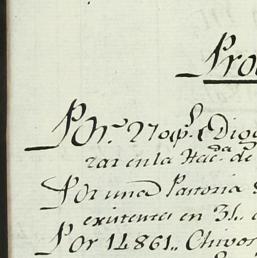 Pro
Por. 270 ps. Dieg
rar en la Hacda. de
Por una Partoria
existentes en 31.. d
Por 14861.. Chivos